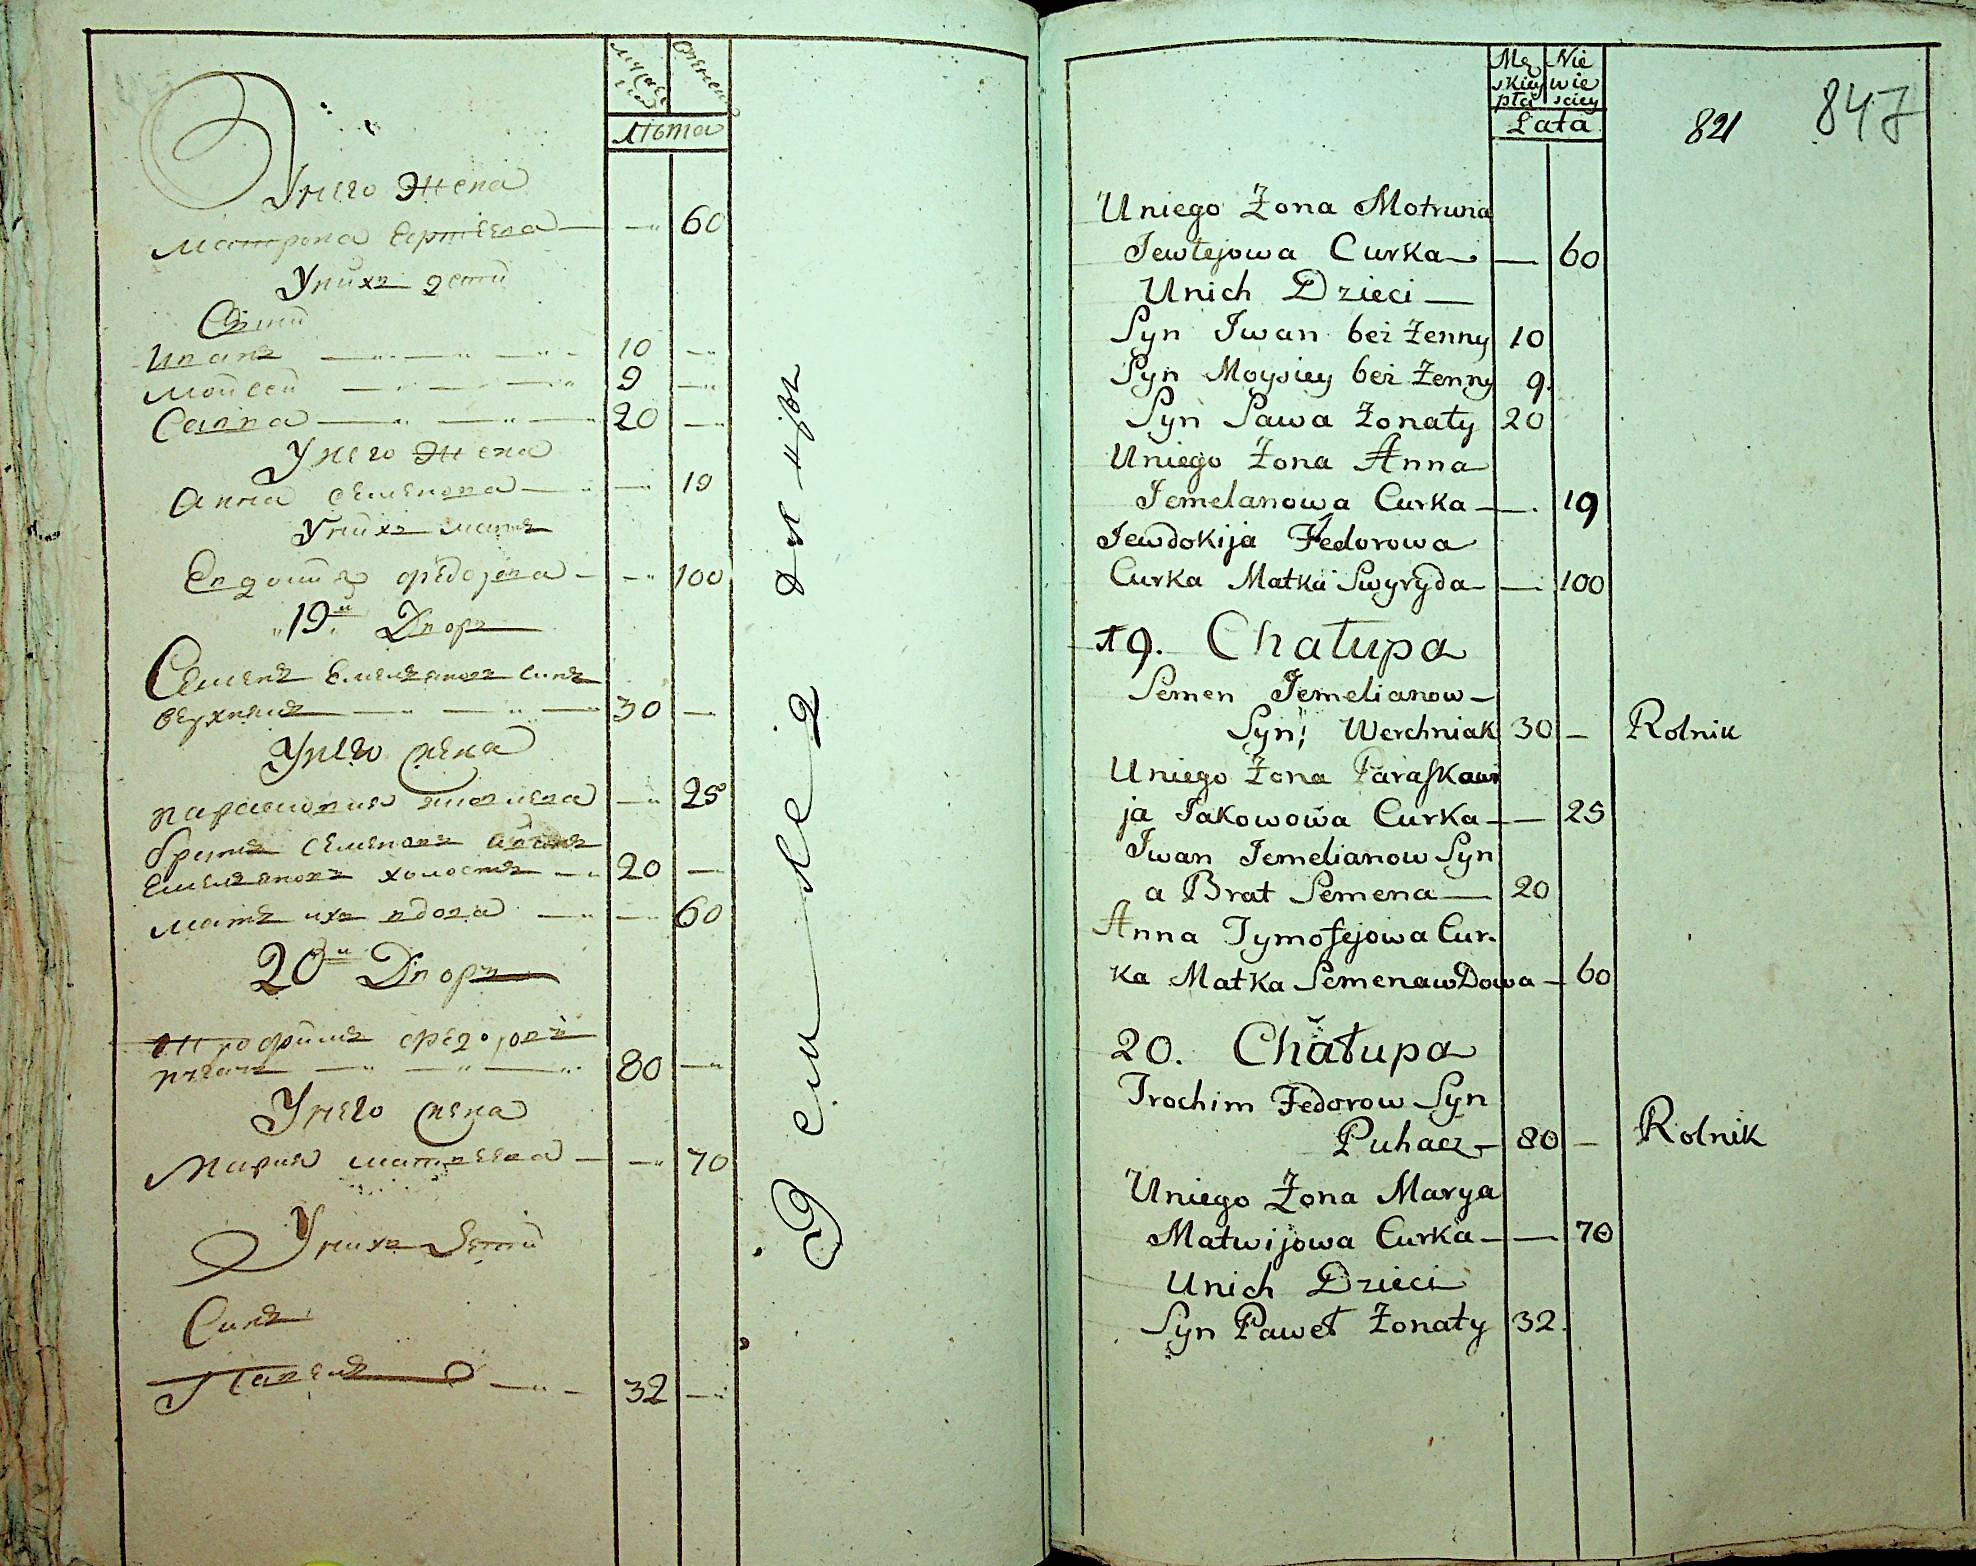 мужес
кой
женск
Лѣта
У него жена
матрона 60
У нихъ дети
Сыни
Иванъ 10
мойсей 9
Савва 20
У него жена
анна семенова 19
У нихъ мать
Евдокия федорова 100
19й Дворъ
Семенъ Емельяновъ синъ
верхнякъ 30
У него жена
параскопия яковлева 25
братъ семеновъ
Емельяновъ холостъ 20
мать ихъ вдова 60
20й Дворъ
трофимъ федоровъ
пугачъ 80
У него жена
Мария матвеева 70
У нихъ дети
Синъ
Павелъ 32
Mę
skiey
płci
Nie
wie
sciey
Lata
821
847
Uniego Żona Motruna
Jewtejowa Curka — 60
Unich Dzieci
Syn Iwan bez Żenny 10
Syn Moysiey bez Żenny 9.
Syn Sawa Żonaty 20
Uniego Żona Anna
Jemelanowa Curka — 19
Jewdokija Fedorowa
Curka Matka Swyryda — 100
19. Chałupa
Semen Jemelianow
Syn; Werchniak 30 — Rolnik
Uniego Żona Paraskawi
ja Jakowowa Curka — 25
Iwan Jemelianow Syn
a Brat Semena — 20
Anna Tymofejowa Cur.
ka Matka Semena wDowa — 60
20. Chałupa
Trochim Fedorow Syn
Puhacz — 80 — Rolnik
Uniego Żona Marya
Matwijowa Curka — 70
Unich Dzieci
Syn Paweł Żonaty 32.